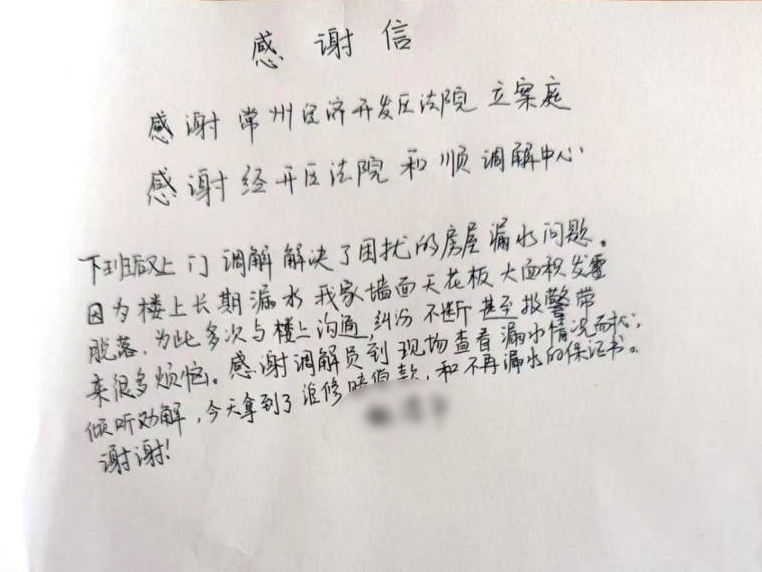 感谢信
感谢常州经济开发区法院立案庭
感谢经开区法院和顺调解中心
下班后又上门调解解决了困扰的房屋漏水问题。
因为楼上长期漏水我家墙面天花板大面积发霉
脱落,为此多次与楼上沟通,纠纷不断甚至报警带
来很多烦恼。感谢调解员到现场查看漏水情况
倾听劝解,今天拿到了维修赔偿款,和不再漏水的保证书。
谢谢!